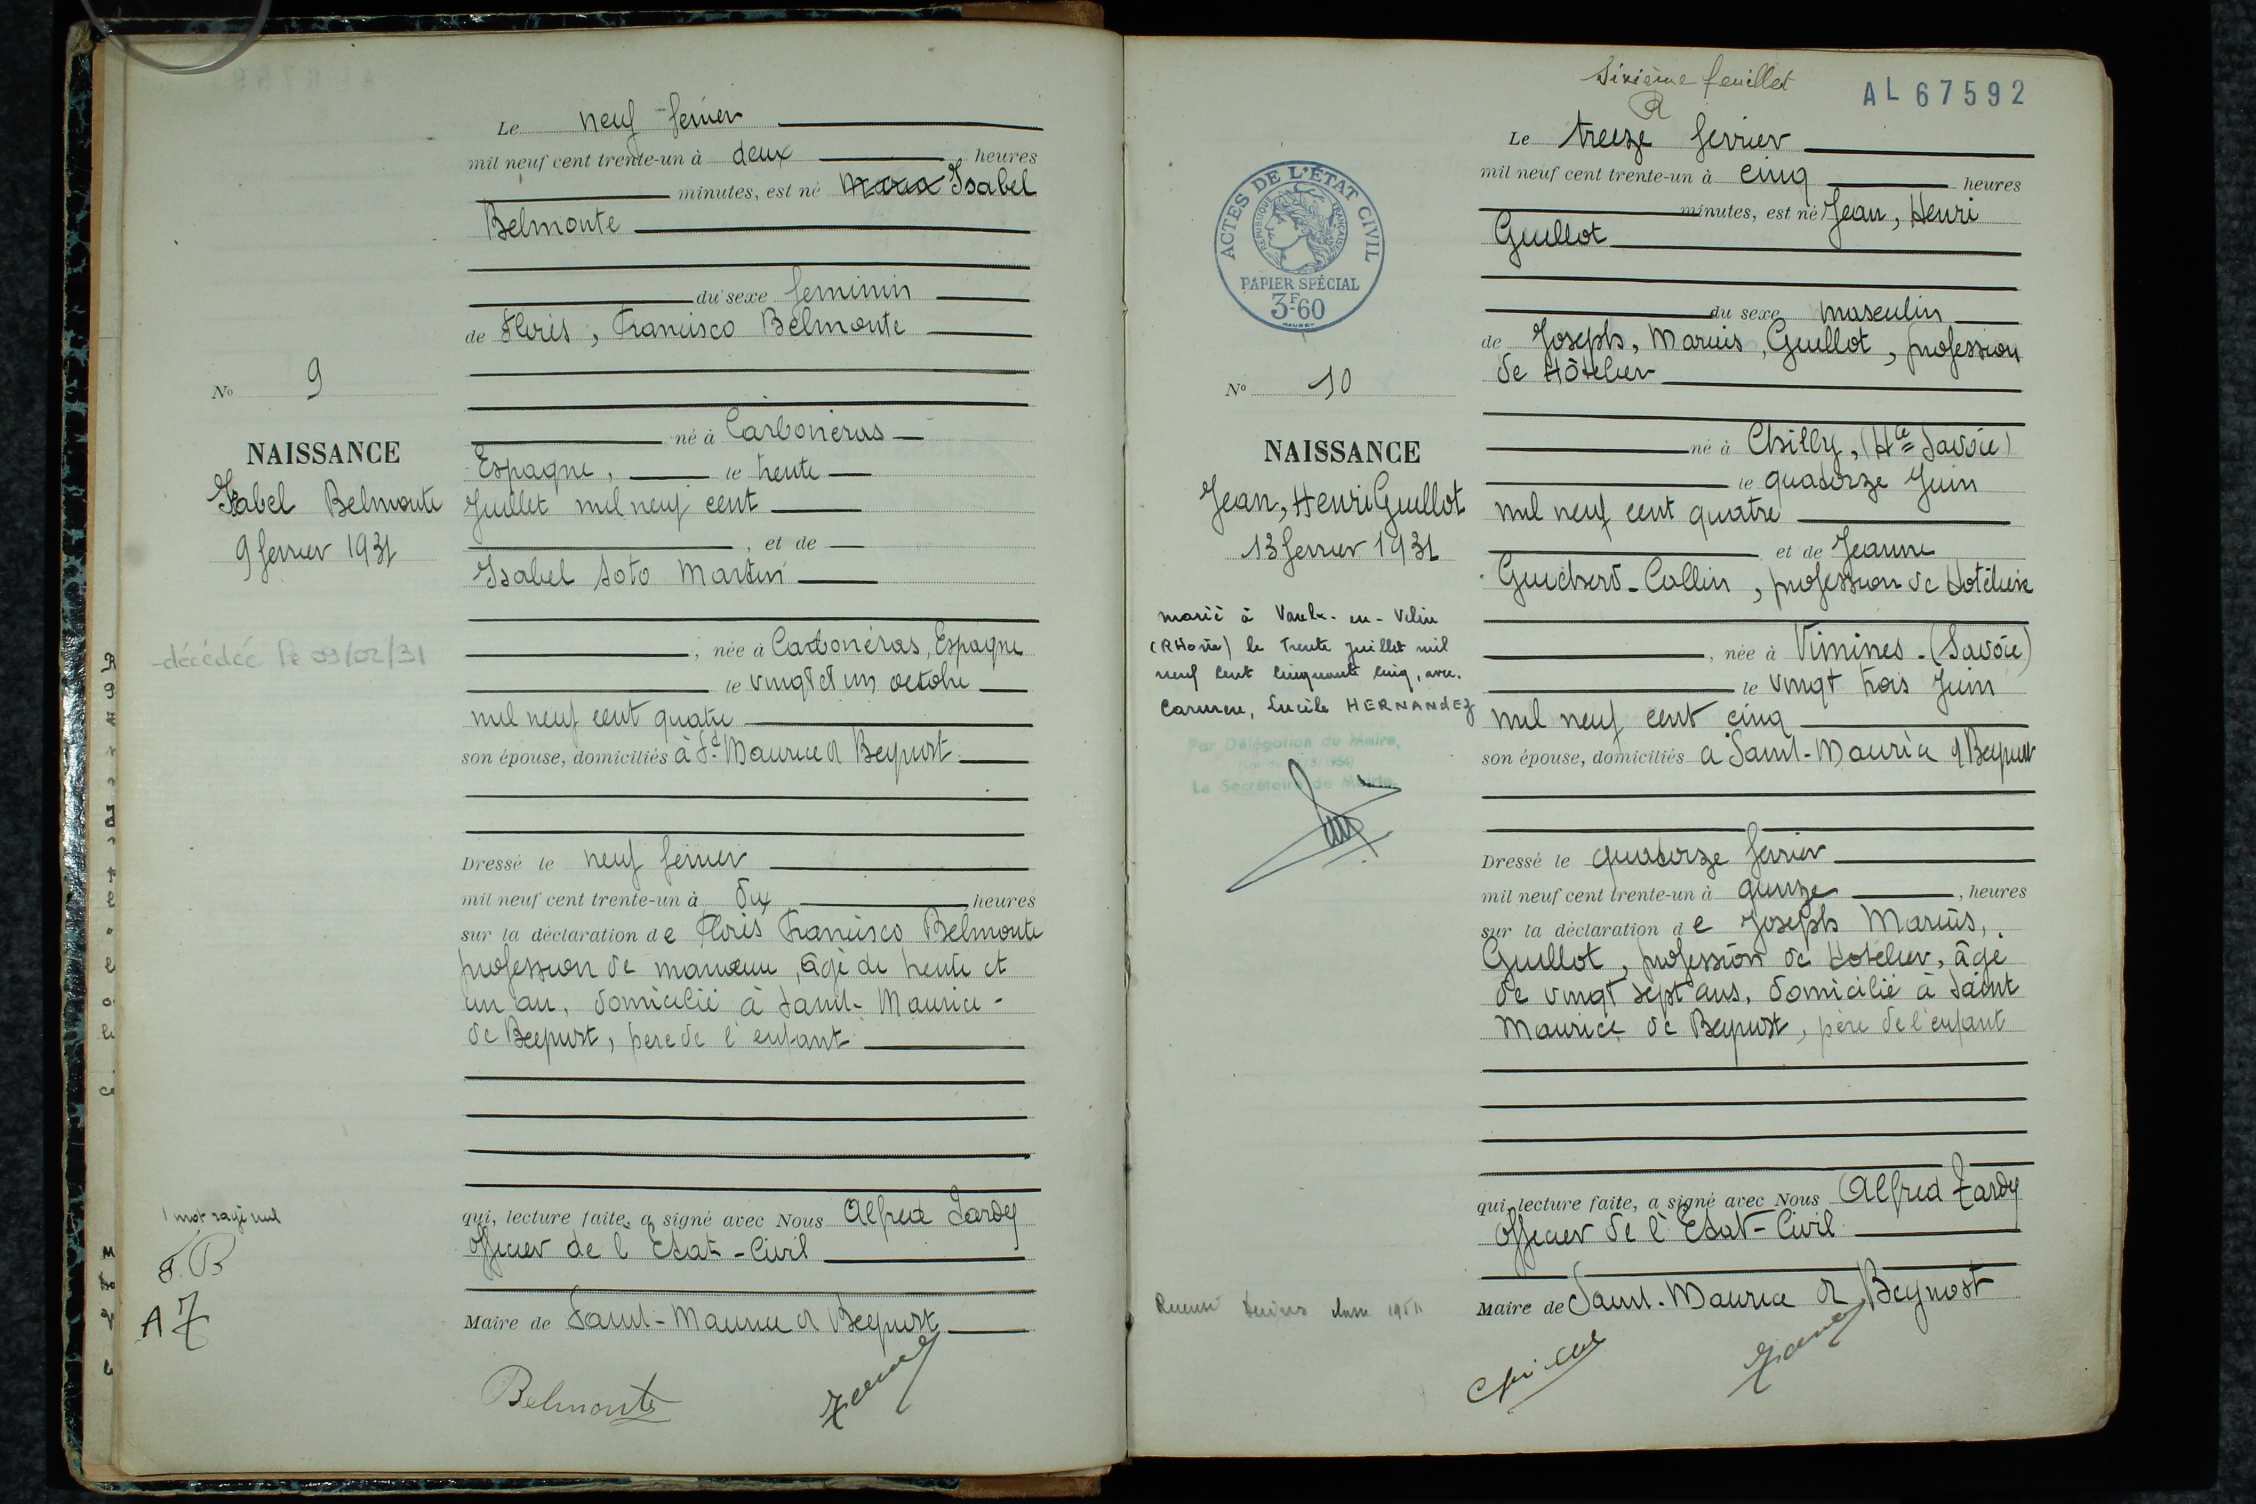 Le neuf fevrier
mil neuf cent trente-un à deux heures
minutes, est né Maria Isabel
Belmonte
du sexe feminin
de Florès, Francisco Belmonte
né à Carbonéras
Espagne, le trente
Juillet mil neuf cent
, et de
Isabel Soto Martin
, née à Carbonéras, Espagne
le vingt et un octobre
mil neuf cent quatre
son épouse, domiciliés à St Maurice de Beynost
Dressé le neuf fevrier
mil neuf cent trente-un à dix heures
sur la déclaration de Florès Francisco Belmonte
profession de manœuvre, âgé de trente et
un an, domicilié à Saint-Maurice-
de Beynost, père de l'enfant
qui, lecture faite, a signé avec Nous Alfred Tardy
Officier de l'Etat-Civil
Maire de Saint-Maurice de Beynost
Belmonte
Tardy
No 9
NAISSANCE
Isabel Belmonte
9 fevrier 1931
décédée le 09/02/31
1 mot rayé nul
F.B
A T
Sixième feuillet
AL67592
Le treize fevrier
mil neuf cent trente-un à cinq heures
minutes, est né Jean, Henri
Guillot
du sexe masculin
de Joseph, Marius, Guillot, profession
de Hôtelier
né à Chilly, (Hte Savoie)
le quatorze Juin
mil neuf cent quatre
et de Jeanne
Guicherd-Collin, profession de Hotelière
, née à Vimines-(Savoie)
le vingt trois Juin
mil neuf cent cinq
son épouse, domiciliés à Saint-Maurice de Beynost
Dressé le quatorze fevrier
mil neuf cent trente-un à quinze, heures
sur la déclaration de Joseph Marius,
Guillot, profession de Hotelier, âgé
de vingt sept ans, domicilié à Saint
Maurice de Beynost, père de l'enfant
qui, lecture faite, a signé avec Nous Alfred Tardy
Officier de l'Etat-Civil
Maire de Saint-Maurice de Beynost
Guillot
Tardy
ACTES DE L'ÉTAT CIVIL
RÉPUBLIQUE FRANÇAISE
PAPIER SPÉCIAL
3F60
No 10
NAISSANCE
Jean, Henri Guillot
13 fevrier 1931
marié à Vaulx-en-Velin
(Rhône) le trente juillet mil
neuf cent cinquante cinq, avec
Carmen, Lucile HERNANDEZ
Par Délégation du Maire,
Le Secrétaire de Mairie,
classe 1951